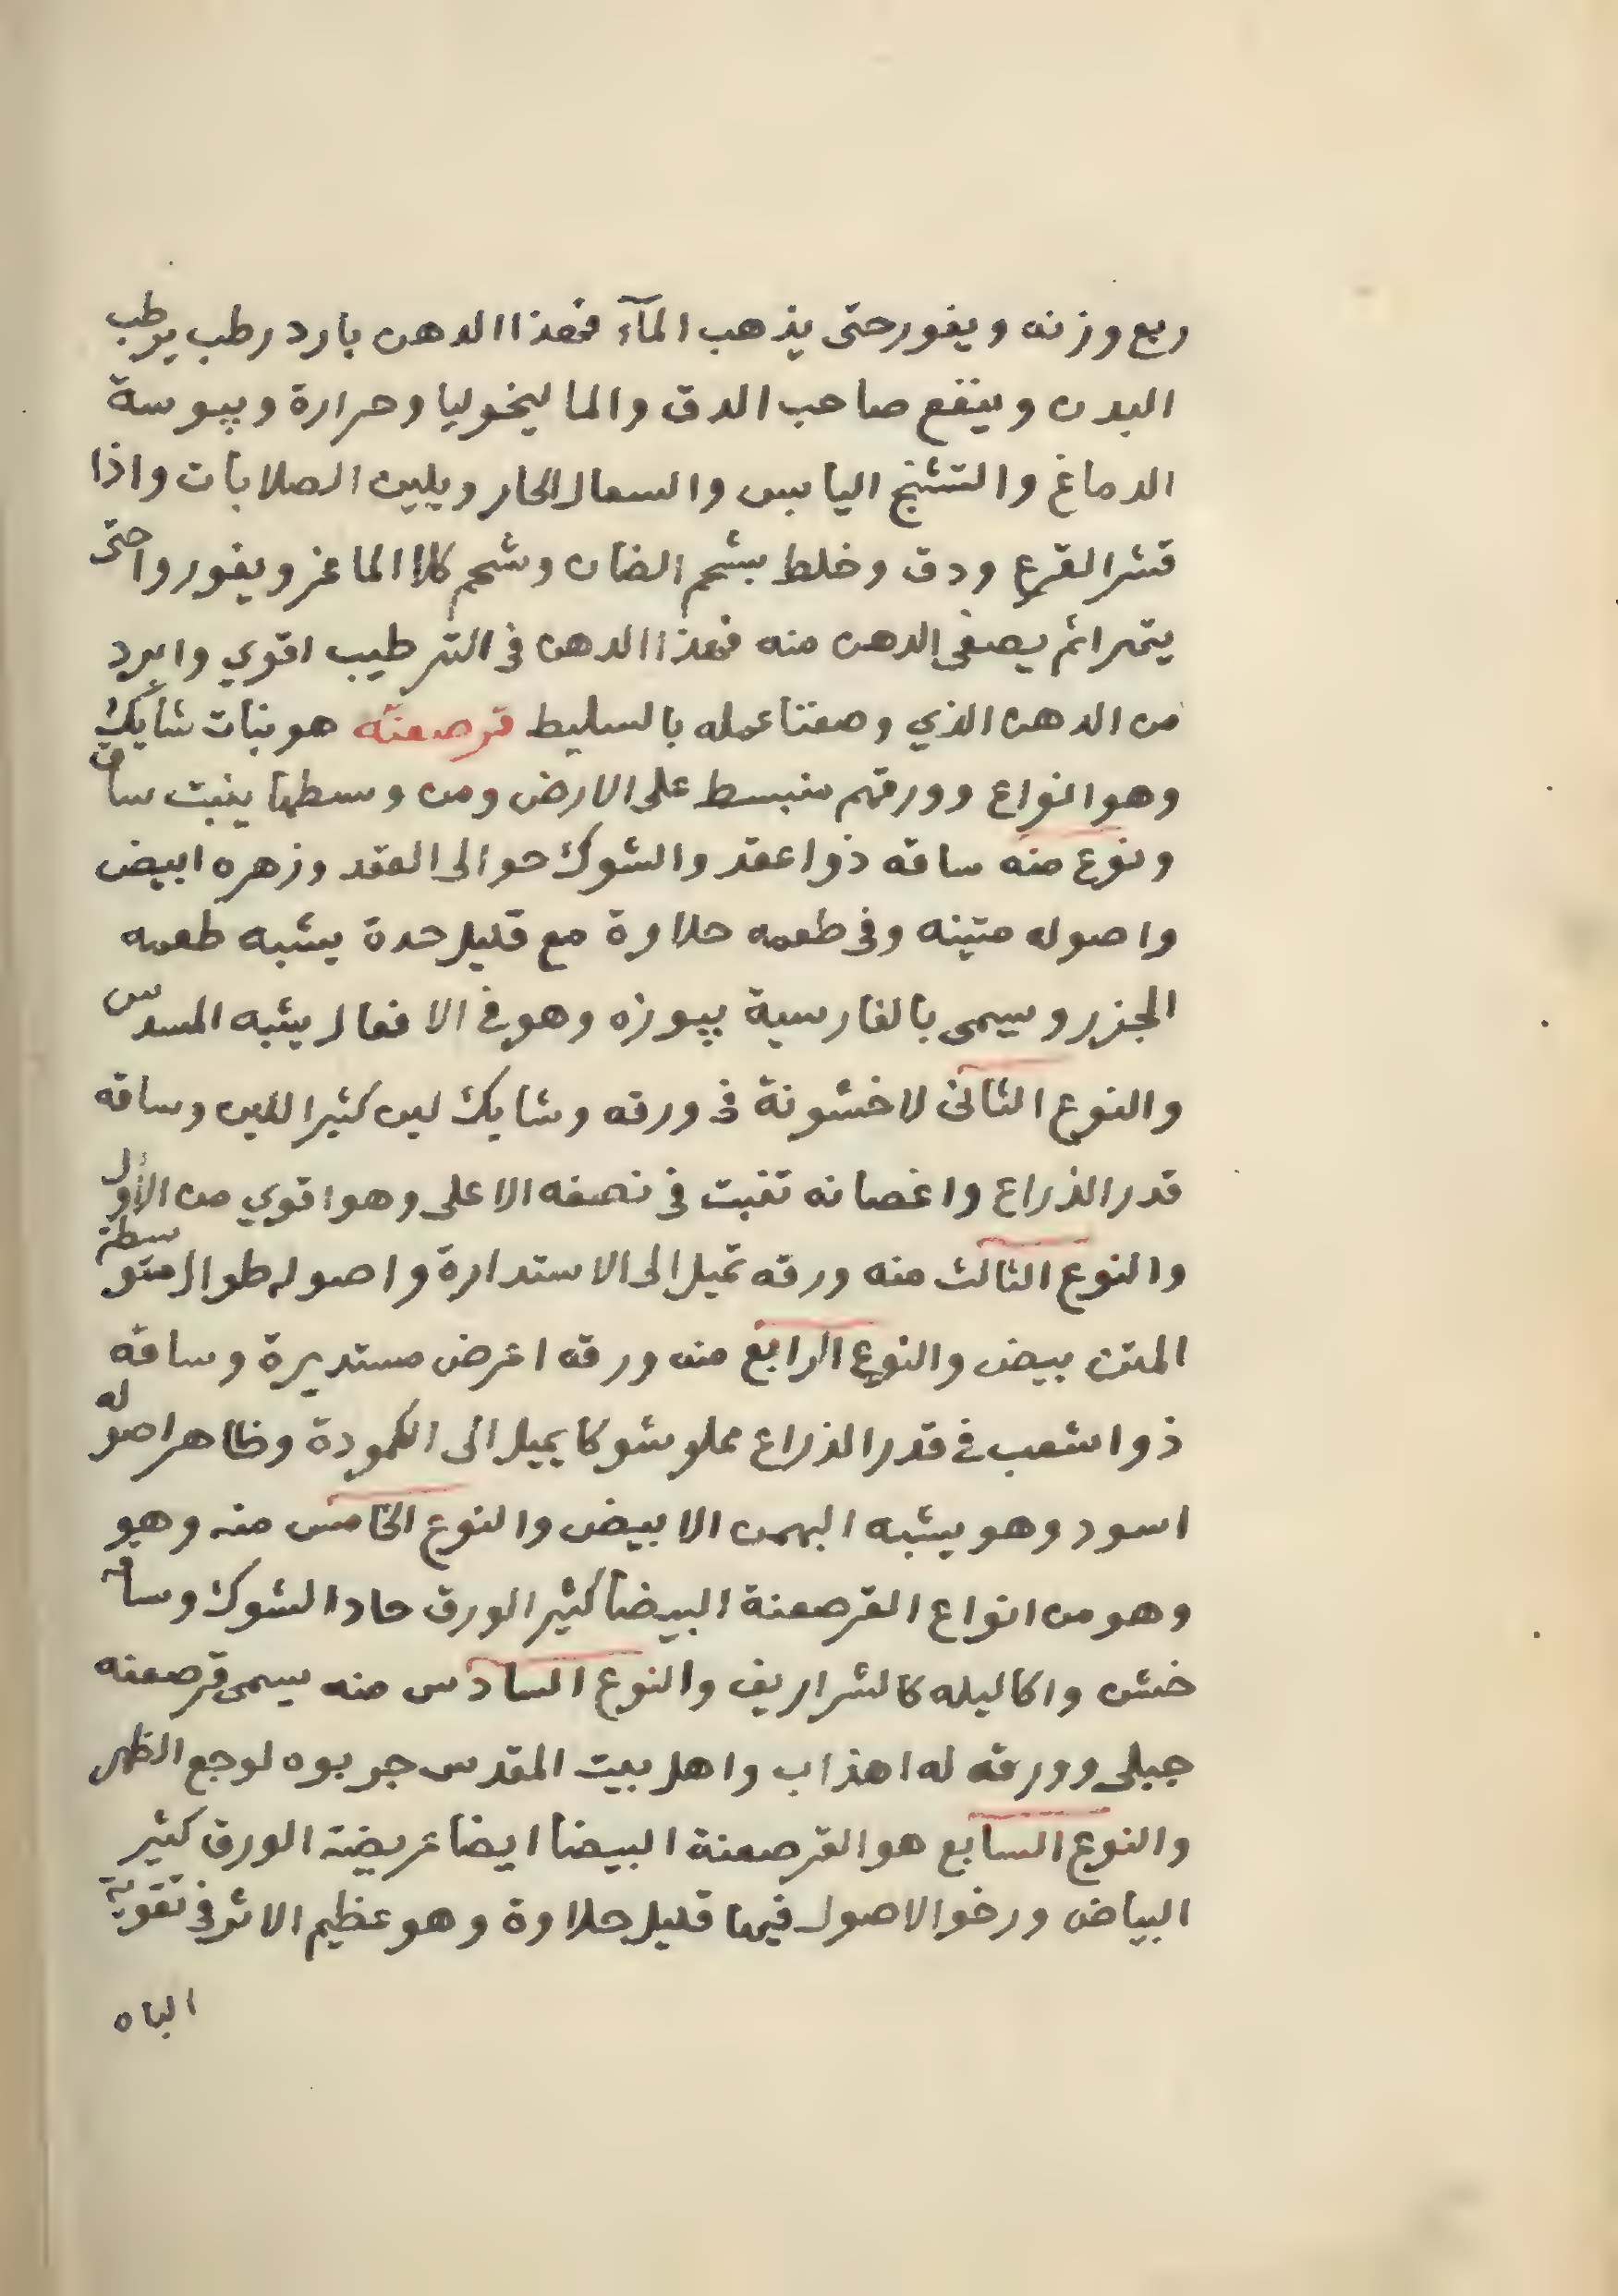 ربع وزنه ويفور حتى يذهب المآء فهذا الدهن بارد رطب يرطب
البدن وينفع صاحب الدق والماليخوليا وحرارة ويبوسة
الدماغ والتشنج اليابس والسعال الحار ويلين الصلابات واذا
قشر القرع ودق وخلط بشحم الضان وشحم كلا الماعز ويفوروا حتى
يتهرا ثم يصفى الدهن منه فهذا الدهن في الترطيب اقوي وابرد
من الدهن الذي وصفنا عمله بالسليط قرصعنه هو نبات شايك
وهو انواع وورقهم منبسط على الارض ومن وسطها ينبت ساق
ونوع منه ساقه ذوا عقد والشوك حوالى العقد وزهره ابيض
واصوله متينه وفى طعمه حلاوة مع قليل حدة يشبه طعمه
الجزر ويسمى بالفارسية بيوزه وهو في الافعال يشبه المسدس
والنوع الثانى لا خشونة في ورقه وشايك لين كثير اللين وساقه
قدر الذراع واغصانه تنبت في نصفه الاعلى وهو اقوي من الأول
والنوع الثالث منه ورقه تميل الى الاستدارة واصوله طوال متوسطة
المتن بيض والنوع الرابع منه ورقه اعرض مستديرة وساقه
ذوا شعب في قدر الذراع مملو شوكا يميل الى الكمودة وظاهر اصوله
اسود وهو يشبه البهمن الابيض والنوع الخامس منه وهو
وهو من انواع القرصعنة البيضا كثير الورق حاد الشوك وساقه
خشن واكاليله كالشراريف والنوع السادس منه يسمى قرصعنه
جبلى وورقه له اهذاب واهل بيت المقدس جربوه لوجع الظهر
والنوع السابع هو القرصعنة البيضا ايضا عريضة الورق كثير
البياض ورخو الاصول فيها قليل حلاوة وهو عظيم الاثر في تقوية
الباه